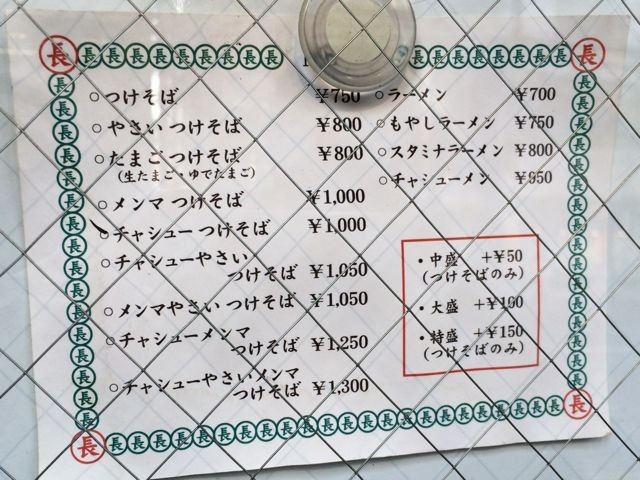 長 長長長長長長長長長 長長長長長長長長 長
○つけそば ¥750
○やさいつけそば ¥800
○たまごつけそば ¥800
(生たまご・ゆでたまご)
○メンマつけそば ¥1,000
○チャシューつけそば ¥1,000
○チャシューやさい
つけそば ¥1,050
○メンマやさいつけそば ¥1,050
○チャシューメンマ
つけそば ¥1,250
○チャシューやさいメンマ
つけそば ¥1,300
○ラーメン ¥700
○もやしラーメン ¥750
○スタミナラーメン ¥800
○チャシューメン ¥950
・中盛 +¥50
(つけそばのみ)
・大盛 +¥100
・特盛 +¥150
(つけそばのみ)